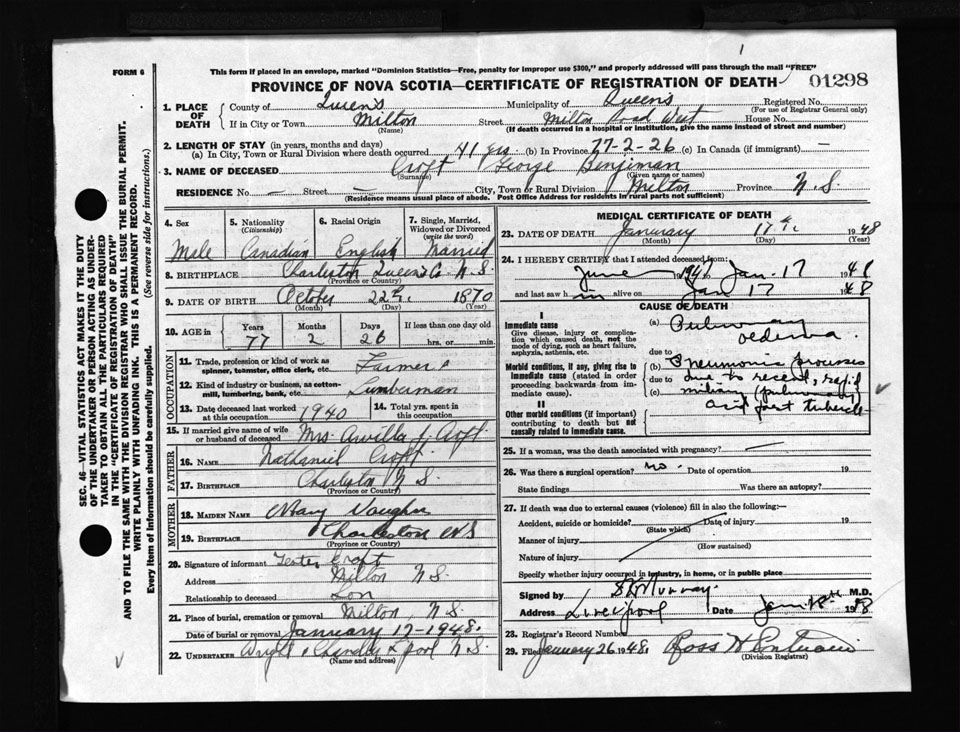 FORM 6
This form if placed in an envelope, marked "Dominion Statistics—Free, penalty for improper use $300," and properly addressed will pass through the mail "FREE"
PROVINCE OF NOVA SCOTIA—CERTIFICATE OF REGISTRATION OF DEATH
01298
1. PLACE OF DEATH
County of Queens Municipality of Queens Registered No.
(For use of Registrar General only)
If in City or Town Milton Street Milton Road West House No.
(Name) (If death occurred in a hospital or institution, give the name instead of street and number)
2. LENGTH OF STAY (in years, months and days)
(a) In City, Town or Rural Division where death occurred 41 yrs (b) In Province 77-2-26 (c) In Canada (if immigrant) —
3. NAME OF DECEASED Croft George Benjiman
(Surname) (Given name or names)
RESIDENCE No. — Street — City, Town or Rural Division Milton Province N.S.
(Residence means usual place of abode. Post Office Address for residents in rural parts not sufficient)
4. Sex Male
5. Nationality (Citizenship) Canadian
6. Racial Origin English
7. Single, Married, Widowed or Divorced (write the word) Married
8. BIRTHPLACE Charleston Queens Co. N.S.
(Province or Country)
9. DATE OF BIRTH October 22nd. 1870
(Month) (Day) (Year)
10. AGE in Years Months Days If less than one day old
77 2 26 hrs. or min.
OCCUPATION
11. Trade, profession or kind of work as spinner, teamster, office clerk, etc. Farmer
12. Kind of industry or business, as cotton-mill, lumbering, bank, etc. Lumberman
13. Date deceased last worked at this occupation 1940
14. Total yrs. spent in this occupation
15. If married give name of wife or husband of deceased Mrs. Arvilla J. Croft
FATHER
16. NAME Nathaniel Croft
17. BIRTHPLACE Charleston N.S.
(Province or Country)
MOTHER
18. MAIDEN NAME Mary Vaughn
19. BIRTHPLACE Charleston N.S.
(Province or Country)
20. Signature of informant Croft
Address Milton N.S.
Relationship to deceased Son
21. Place of burial, cremation or removal Milton, N.S.
Date of burial or removal January 17-1948.
22. UNDERTAKER Chandler L'pool N.S.
(Name and address)
MEDICAL CERTIFICATE OF DEATH
23. DATE OF DEATH January 17th 1948
(Month) (Day) (Year)
24. I HEREBY CERTIFY that I attended deceased from:
June 1947 to Jan. 17 1948
and last saw him alive on Jan 17 1948
CAUSE OF DEATH
I
Immediate cause
Give disease, injury or complication which caused death, not the mode of dying, such as heart failure, asphyxia, asthenia, etc.
(a) Pulmonary oedema
due to
Morbid conditions, if any, giving rise to immediate cause (stated in order proceeding backwards from immediate cause).
(b) Pneumonic processes
due to due to recent, rapid
(c) miliary (pulmonary)
II
Other morbid conditions (if important) contributing to death but not causally related to immediate cause.
25. If a woman, was the death associated with pregnancy? —
26. Was there a surgical operation? no. Date of operation 19
State findings Was there an autopsy?
27. If death was due to external causes (violence) fill in also the following:—
Accident, suicide or homicide? Date of injury 19
(State which)
Manner of injury
(How sustained)
Nature of injury
Specify whether injury occurred in industry, in home, or in public place
Signed by Murray. M.D.
Address Liverpool Date Jan 1948
28. Registrar's Record Number
29. Filed January 26 1948. Ross
(Division Registrar)
SEC. 46—VITAL STATISTICS ACT MAKES IT THE DUTY
OF THE UNDERTAKER OR PERSON ACTING AS UNDERTAKER
TO OBTAIN ALL THE PARTICULARS REQUIRED
IN THE "CERTIFICATE OF REGISTRATION OF DEATH"
AND TO FILE THE SAME WITH THE DIVISION REGISTRAR WHO SHALL ISSUE THE BURIAL PERMIT.
WRITE PLAINLY WITH UNFADING INK. THIS IS A PERMANENT RECORD.
Every item of Information should be carefully supplied. (See reverse side for instructions.)